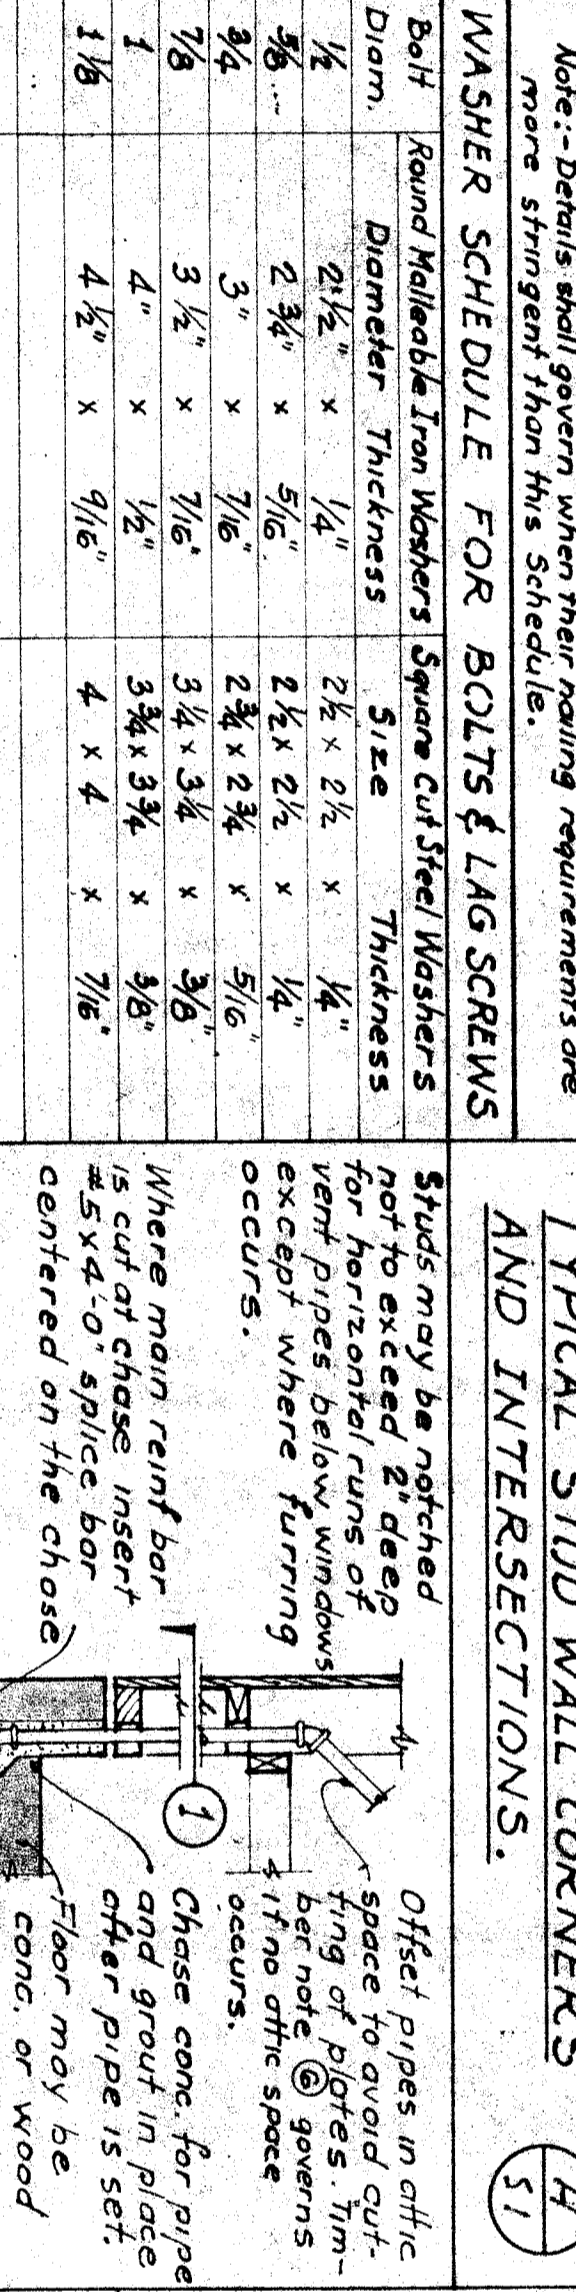 Note:- Details shall govern when their nailing requirements are
more stringent than this Schedule.
WASHER SCHEDULE FOR BOLTS & LAG SCREWS
Bolt Diam. Round Malleable Iron Washers Square Cut Steel Washers
Diameter Thickness Size Thickness
1/2 2 1/2" x 1/4" 2 1/2 x 2 1/2 x 1/4"
5/8 ... 2 3/4" x 5/16" 2 1/2 x 2 1/2 x 1/4"
3/4 3" x 7/16" 2 3/4 x 2 3/4 x 5/16"
7/8 3 1/2" x 7/16" 3 1/4 x 3 1/4 x 3/8"
1 4" x 1/2" 3 3/4 x 3 3/4 x 3/8"
1 1/8 4 1/2" x 9/16" 4 x 4 x 7/16"
TYPICAL STUD WALL CORNERS
AND INTERSECTIONS.
H
S1
Studs may be notched
not to exceed 2" deep
for horizontal runs of
vent pipes below windows
except where furring
occurs.
Where main reinf bar
is cut at chase insert
#5x4'-0" splice bar
centered on the chase
1
Offset pipes in attic
space to avoid cut-
ting of plates. Tim-
ber note G governs
if no attic space
occurs.
Chase conc. for pipe
and grout in place
after pipe is set.
Floor may be
conc. or wood